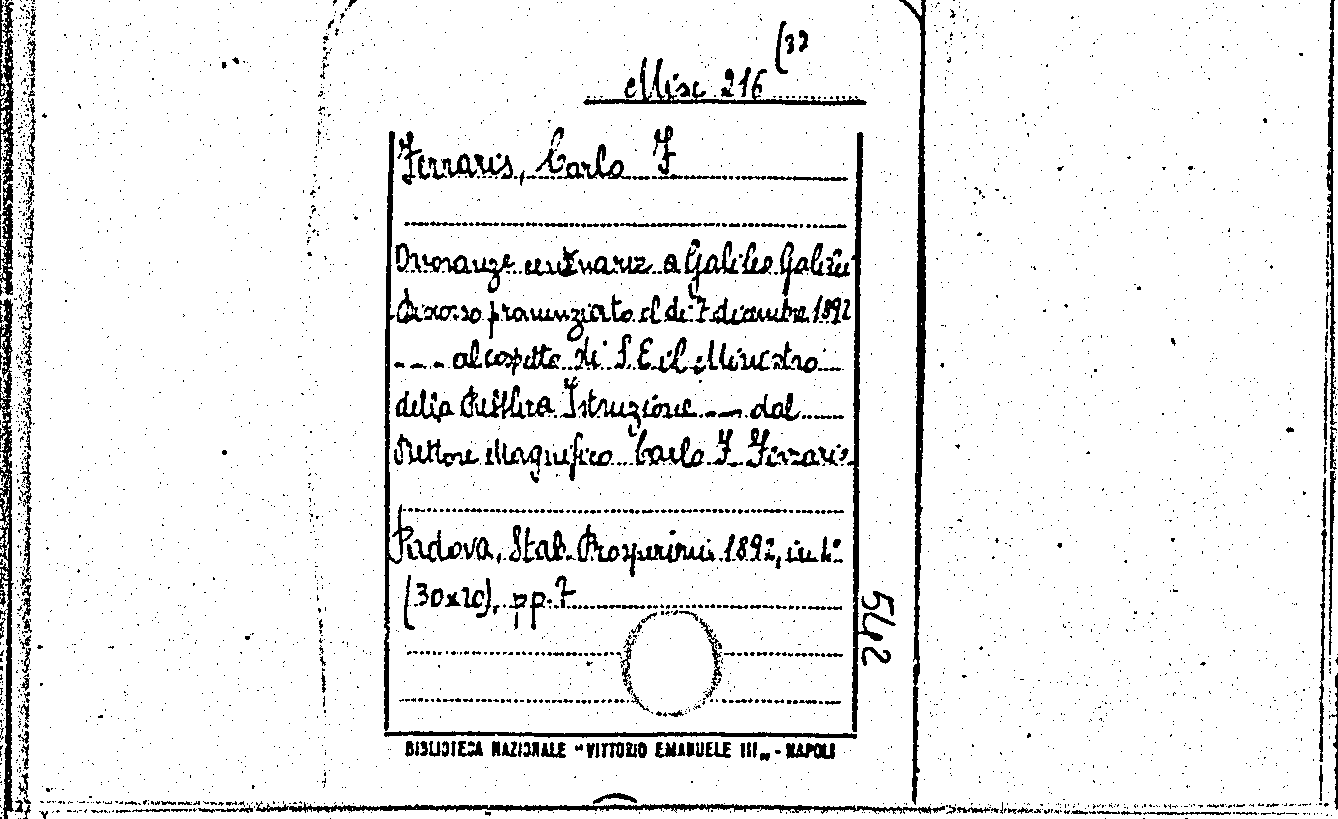 Misc 216 (32
Ferraris, Carlo F
Onoranze centenarie a Galileo Galilei
Discorso pronunziato il dì 7 dicembre 1892
--- al cospetto di S. E. il Ministro
della Pubblica Istruzione --- dal
Rettore Magnifico Carlo F. Ferraris.
Padova, Stab. Prosperini 1892, in 4°
(30x20), pp. 7
542
BIBLIOTECA NAZIONALE "VITTORIO EMANUELE III„ - NAPOLI